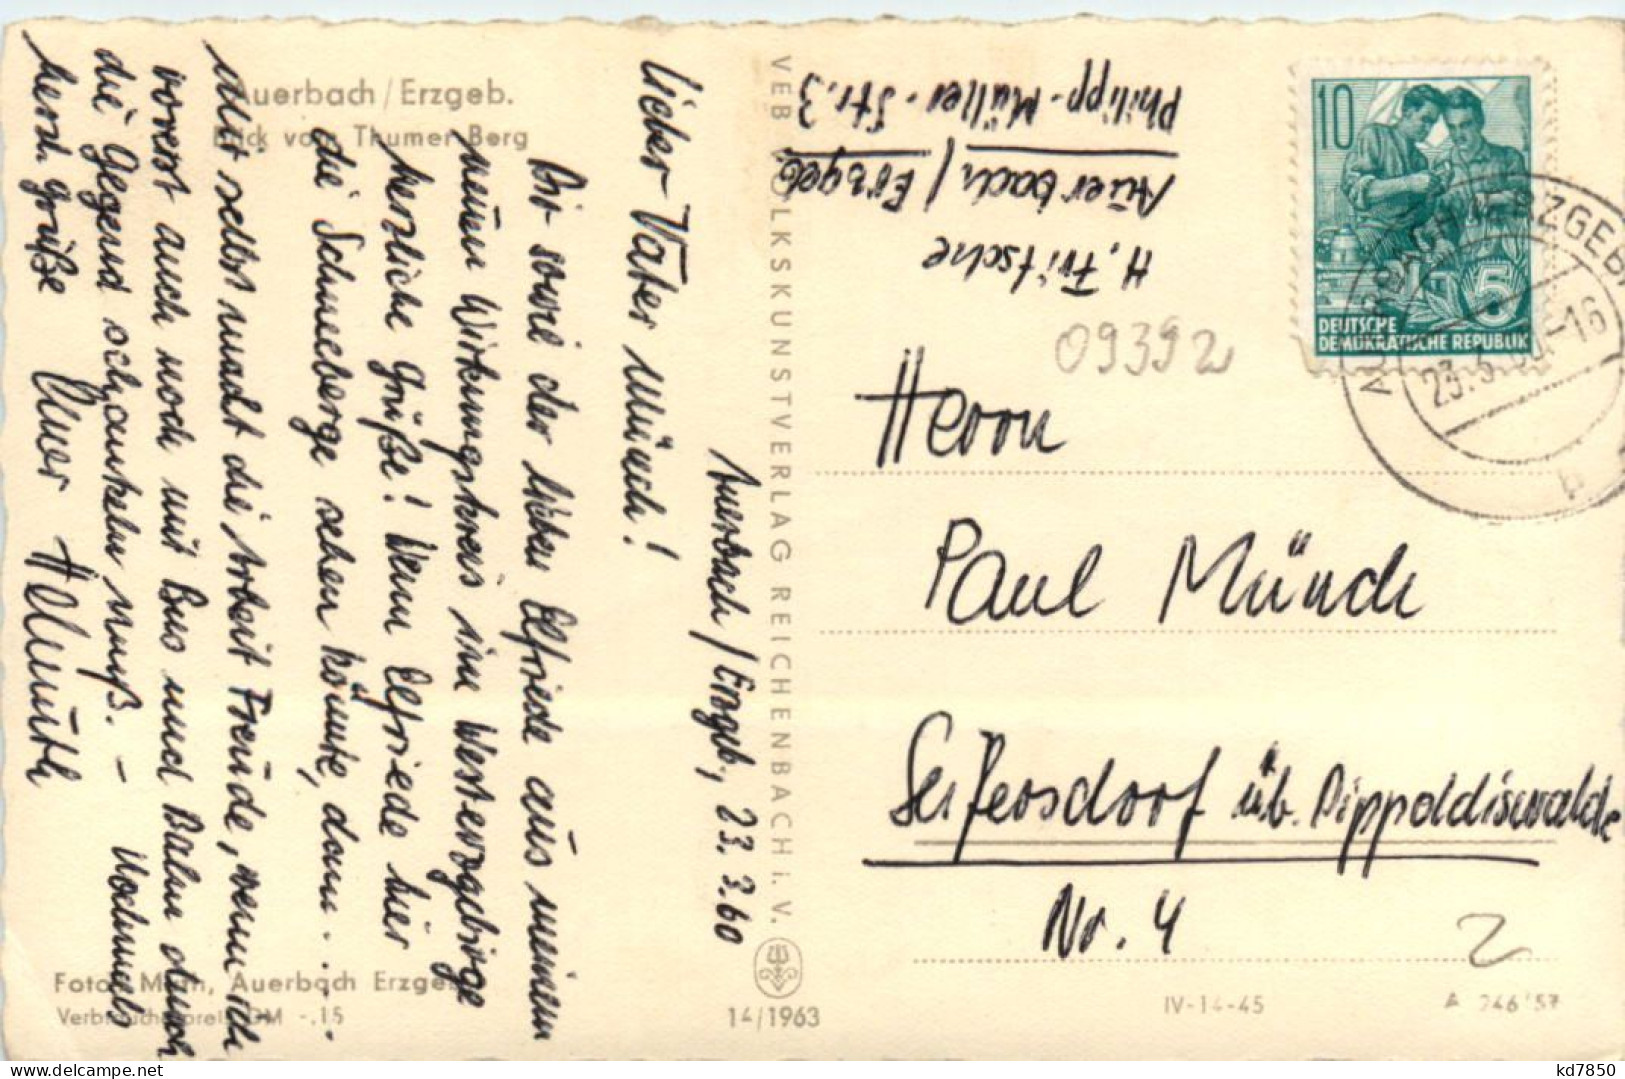 Auerbach/Erzgeb.
Blick vom Thumer Berg
Auerbach/Erzgeb., 23.3.60
Lieber Vater Münch!
Dir sowie der lieben Elfriede aus meinem
neuen Wirkungskreis im Westerzgebirge
herzliche Grüße! Wenn Elfriede hier
die Schneeberge sehen könnte, dann . . . .
Mir selbst macht die Arbeit Freude, wenn ich
vorerst auch noch mit Bus und Bahn durch
die Gegend schaukeln muß. – Nochmals
herzl. Grüße Euer Hellmuth
Foto: Mann, Auerbach Erzgeb.
Verbraucherpreis DM -.15
VEB VOLKSKUNSTVERLAG REICHENBACH i. V.
14/1963
H. Fritsche
Auerbach/Erzgeb.
Philipp-Müller-Str.3
09392
10
5
DEUTSCHE
DEMOKRATISCHE REPUBLIK
AUERBACH (ERZGEB)
23.3.60.-16
b
Herrn
Paul Münch
Seifersdorf üb. Dippoldiswalde
Nr. 4
2
IV-14-45
A 246/57
kd7850